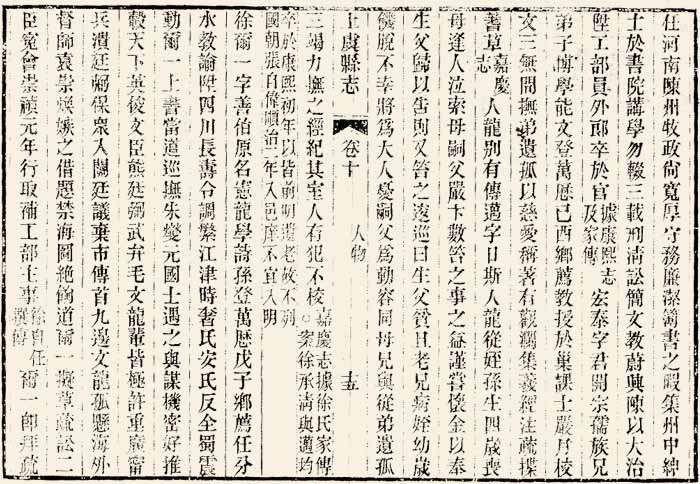 任河南陳州牧政尚寬厚守務廉潔簿書之暇集州中紳
士於書院講學勿輟三載刑清訟簡文教蔚興陳以大治
陞工部員外郎卒於官據康熙志及家傳 宏泰字君開宗儒族兄
弟子博學能文登萬厯己酉鄉薦教授於巢課士嚴月校
文三無間撫弟遺孤以慈愛稱著有觀瀾集義經注疏揲
蓍草嘉慶志 人龍別有傳邁字日斯人龍從姪孫生四歲喪
母逢人泣索母嗣父嚴卞數笞之事之益謹嘗懷金以奉
生父歸以告則又笞之逡巡曰生父貧且老兄病姪幼歲
饑脫不幸將為大人憂嗣父為動容同母兄與從弟遺孤
三竭力撫之經紀其室人有犯不校嘉慶志據徐氏家傳○案徐承清與邁均
卒於康熙初年以皆前明遺老故不列
國朝張自偉順治二年入邑庠不宜入明
上虞縣志 卷十 人物 十五
徐爾一字善伯原名憲龍學詩孫登萬厯戊子鄉薦任分
水教諭陞四川長壽令調繁江津時奢氏安氏反全蜀震
動爾一上書當道巡撫朱燮元國士遇之與謀機密好推
轂天下英俊文臣熊廷弼武弁毛文龍輩皆極許重廣甯
兵潰廷弼保衆入關廷議棄市傳首九邊文龍孤懸海外
督師袁崇煥嫉之借題禁海圖絶餉道爾一擬草疏訟二
臣寃會崇禎元年行取補工部主事徐自任撰傳 爾一卽拜疏